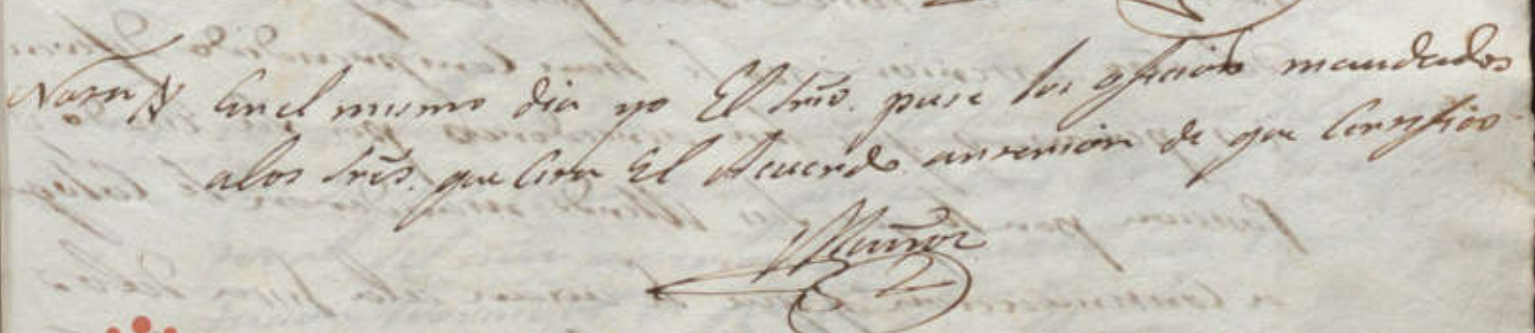 Nota En el mismo dia yo El Srio. puse los oficios mandados
a los Sres. que cita El Acuerdo anterior de que Certifico
Muñoz